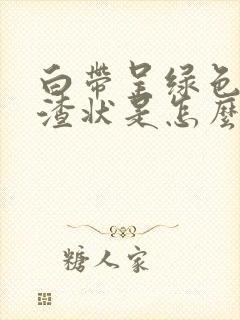 白带呈绿色
渣状是怎麽
糖人家